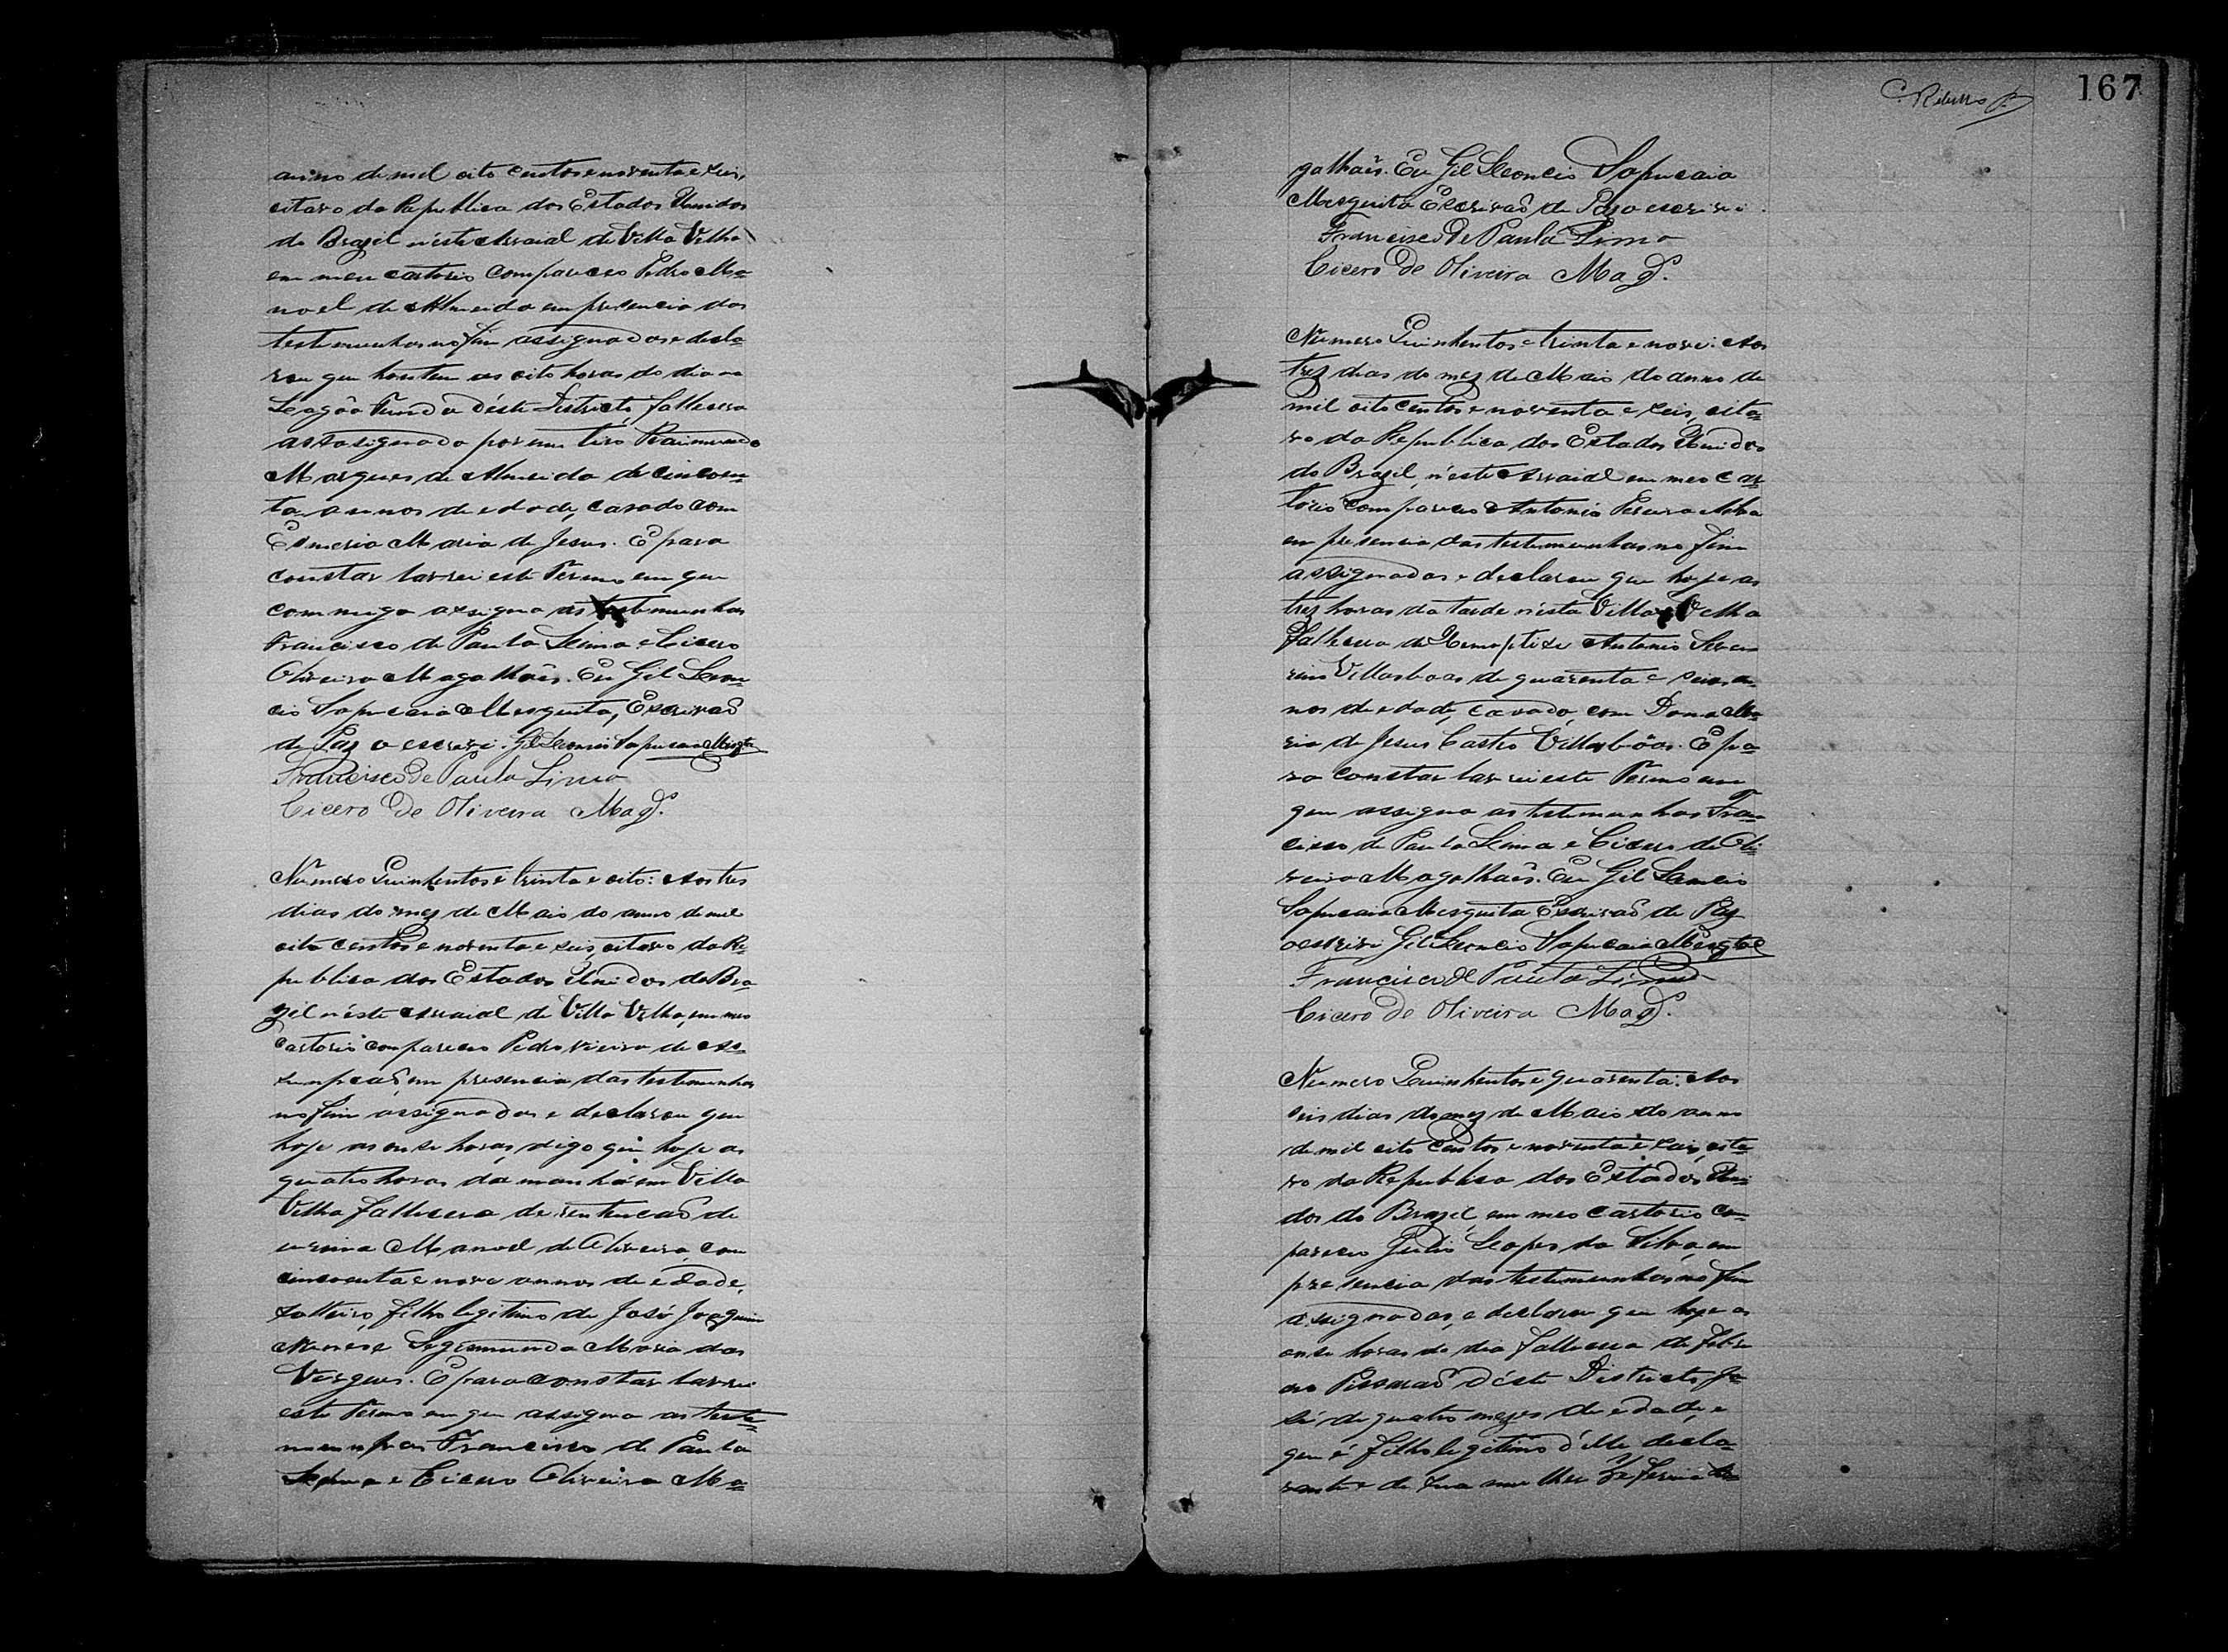 anno de mil oito centos e noventa e seis,
oitavo da Republica dos Estados Unidos
do Brazil n'este Arraial de Villa Velha
em meu cartorio compareceo Pedro Ma=
noel de Almeida em presencia das
testemunhas no fim assignadas e decla=
rou que hontem as oito horas do dia na
Lagôa Funda d'éste Districto, fallecera
assasignado por um tiro Raimundo
Marques de Almeida de cincoen=
ta annos de edade, casado com
Esmeria Maria de Jesus. E para
constar lavrei este Termo em que
commigo assigna as testemunhas
Francisco de Paula Lima e Cicero
Oliveira Magalhães. Eu Gil Leon=
cio Sapucaia Mesquita, Escrivaõ
de Paz o escrevi. Gil Leoncio Sapucaia Mesqta
Francisco de Paula Lima
Cicero de Oliveira Mag.s
Numero Quinhentos e trinta e oito: Aos tres
dias do mez de Maio do anno de mil
oito centos e noventa e seis, oitavo da Re=
publica dos Estados Unidos do Bra
zil n'éste Arraial de Villa Velha, em meo
Cartorio compareceo Pedro Vieira de As=
sumpcaõ, em presencia das testemunhas
no fim assignadas e declarou que
hoje as onse horas, digo que hoje as
quatro horas da manhã em Villa
Velha fallecera de retencaõ de
urina Manoel de Oliveira, com
cincoenta e nove annos de edade,
solteiro, filho legitimo de José Joaquim
Segismunda Maria das
Virgens. E para constar lavrei
este Termo em que assigna as teste=
munhas Francisco de Paula
Lima e Cicero Oliveira Ma=
167
Ribeiro
galhães. Eu Gil Leoncio Sapucaia
Mesquita Escrivaõ de Paz o escrevi.
Francisco de Paula Lima
Cicero de Oliveira Mag.s
Numero Quinhentos e trinta e nove: Aos
trez dias do mez de Maio do anno de
mil oito centos e noventa e seis, oita=
vo da Republica dos Estados Unidos
do Brazil, n'éste Arraial em meo Car
torio compareceo Antonio Pereira
em presencia das testemunhas no fim
assignadas e declarou que hoje as
trez horas da tarde n'ésta Villa Velha
Falleceu de Hemoptise Antonio Seve
rino Villasboas de quarenta e seis an=
nos de edade, casado, com Dona Ma=
ria de Jesus Castro Villasbôas. E pa=
ra constar lavrei este Termo em
que assigna as testemunhas Fran=
cisco de Paula Lima e Cicero de Oli=
veira Magalhães. Eu Gil Leoncio
Sapucaia Mesquita Escrivaõ de Paz
o escrevi Gil Leoncio Sapucaia Mesqta
Francisco de Paula Lima
Cicero de Oliveira Mag.s
Numero Quinhentos e quarenta: Aos
seis dias do mez de Maio do anno
de mil oito centos e noventa e seis, oita=
vo da Republica dos Estados Uni=
dos do Brazil, em meo Cartorio com=
pareceo Julio Lopes da Silva, em
presencia das testemunhas no fim
assignadas, e declarou que hoje as
onse horas do dia fallecera de febre
no d'éste Districto, Jo=
sé de quatro mezes de edade, e
que é filho legitimo d'élle decla=
rante e de sua mulher Zeferina